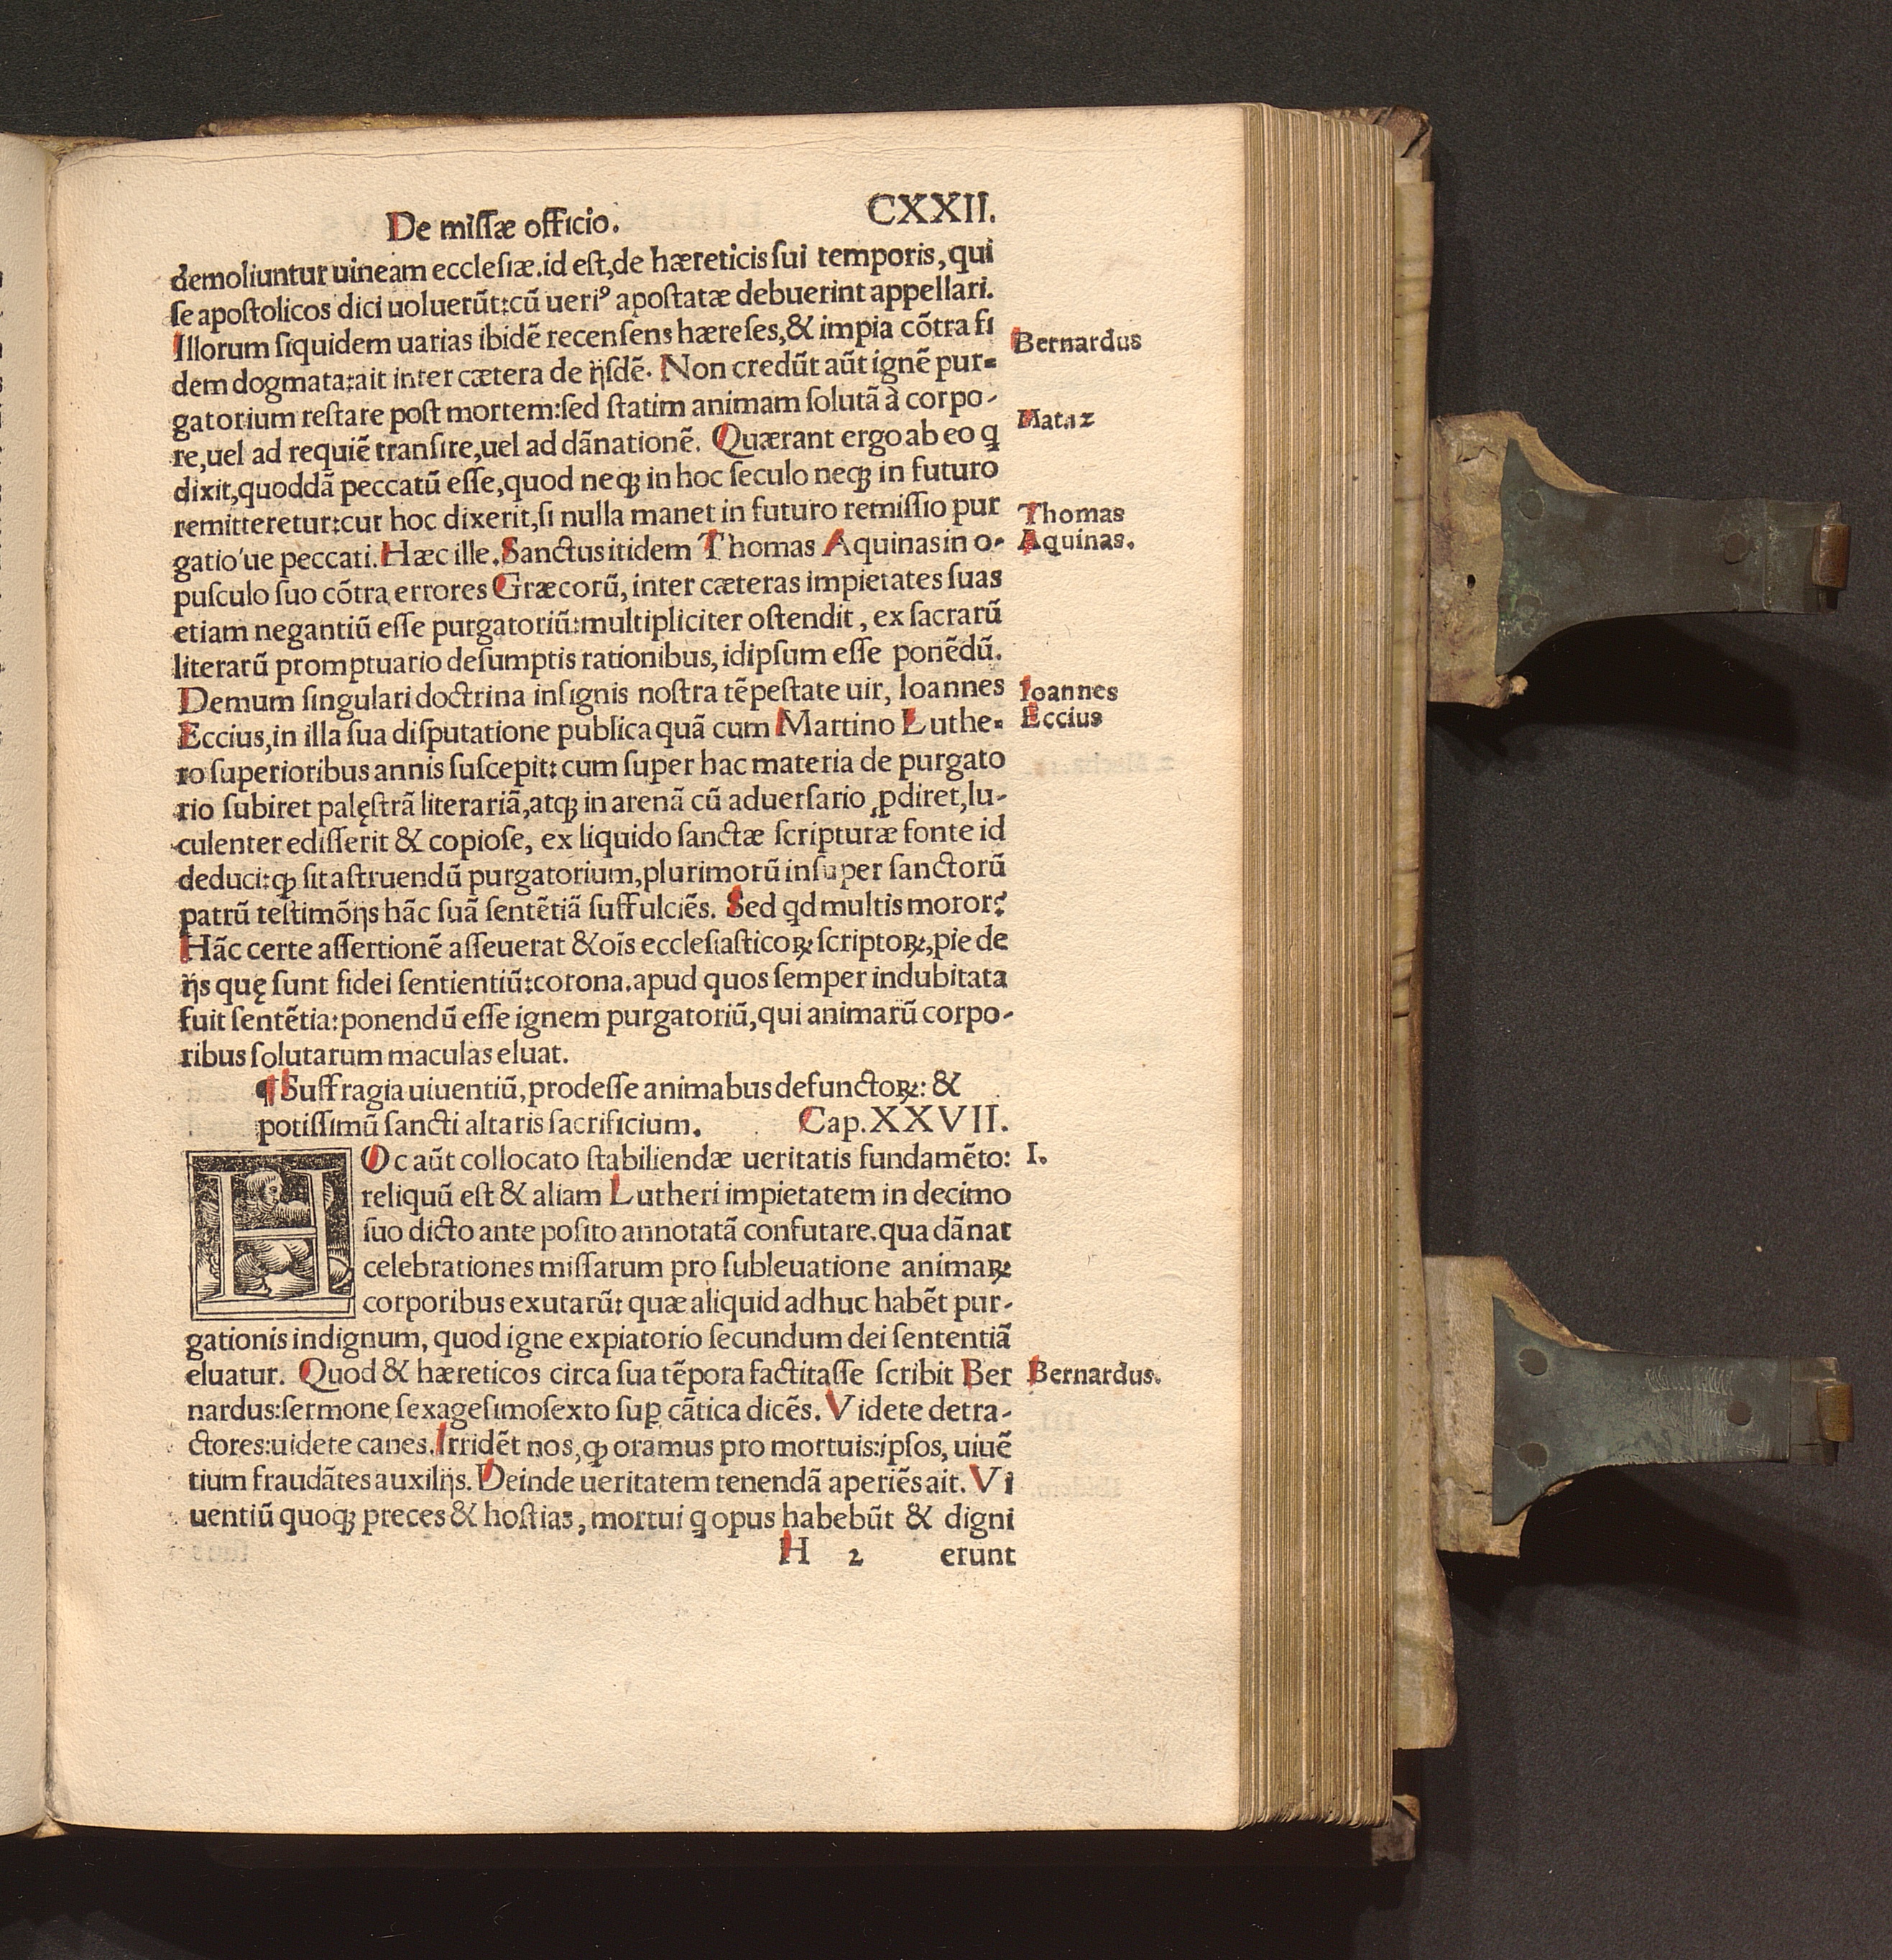 De miſſæ officio. CXXII.
demoliuntur uineam eccleſiæ. id eſt, de hæreticis ſui temporis, qui
ſe apoſtolicos dici uoluerũt: cũ ueriꝰ apoſtatæ debuerint appellari.
Illorum ſiquidem uarias ibidẽ recenſens hæreſes, & impia cõtra fi
Bernardus
dem dogmata: ait inter cætera de ijſdẽ. Non credũt aũt ignẽ pur⸗
gatorium reſtare poſt mortem: ſed ſtatim animam ſolutã à corpo-
Mat. 12
re, uel ad requiẽ tranſire, uel ad dãnationẽ. Quærant ergo ab eo q̃
dixit, quoddã peccatũ eſſe, quod neqꝫ in hoc ſeculo neqꝫ in futuro
remitteretur: cur hoc dixerit, ſi nulla manet in futuro remiſſio pur
Thomas
gatio'ue peccati. Hæc ille. Sanctus itidem Thomas Aquinas in o-
Aquinas.
puſculo ſuo cõtra errores Græcorũ, inter cæteras impietates ſuas
etiam negantiũ eſſe purgatoriũ: multipliciter oſtendit, ex ſacrarũ
literarũ promptuario deſumptis rationibus, idipſum eſſe ponẽdũ.
Demum ſingulari doctrina inſignis noſtra tẽpeſtate uir, Ioannes
Ioannes
Eccius, in illa ſua diſputatione publica quã cum Martino Luthe⸗
Eccius
ro ſuperioribus annis ſuſcepit: cum ſuper hac materia de purgato
rio ſubiret palęſtrã literariã, atqꝫ in arenã cũ aduerſario ꝓdiret, lu-
culenter ediſſerit & copioſe, ex liquido ſanctæ ſcripturæ fonte id
deduci: qꝫ ſit aſtruendũ purgatorium, plurimorũ inſuper ſanctorũ
patrũ teſtimõijs hãc ſuã ſentẽtiã ſuffulciẽs. Sed qd multis moror?
Hãc certe aſſertionẽ aſſeuerat & oĩs eccleſiaſticoꝝ ſcriptoꝝ, pie de
ijs quę ſunt fidei ſentientiũ: corona. apud quos ſemper indubitata
fuit ſentẽtia: ponendũ eſſe ignem purgatoriũ, qui animarũ corpo-
ribus ſolutarum maculas eluat.
¶ Suffragia uiuentiũ, prodeſſe animabus defunctoꝝ: &
potiſſimũ ſancti altaris ſacrificium. Cap. XXVII.
HOc aũt collocato ſtabiliendæ ueritatis fundamẽto: I.
reliquũ eſt & aliam Lutheri impietatem in decimo
ſuo dicto ante poſito annotatã confutare. qua dãnat
celebrationes miſſarum pro ſubleuatione animaꝝ
corporibus exutarũ: quæ aliquid adhuc habẽt pur-
gationis indignum, quod igne expiatorio ſecundum dei ſententiã
eluatur. Quod & hæreticos circa ſua tẽpora factitaſſe ſcribit Ber
Bernardus.
nardus: ſermone ſexageſimoſexto ſuꝑ cãtica dicẽs. Videte detra-
ctores: uidete canes. Irridẽt nos, qꝫ oramus pro mortuis: ipſos, uiuẽ
tium fraudãtes auxilijs. Deinde ueritatem tenendã aperiẽs ait. Vi
uentiũ quoqꝫ preces & hoſtias, mortui q̃ opus habebũt & digni
H 2 erunt